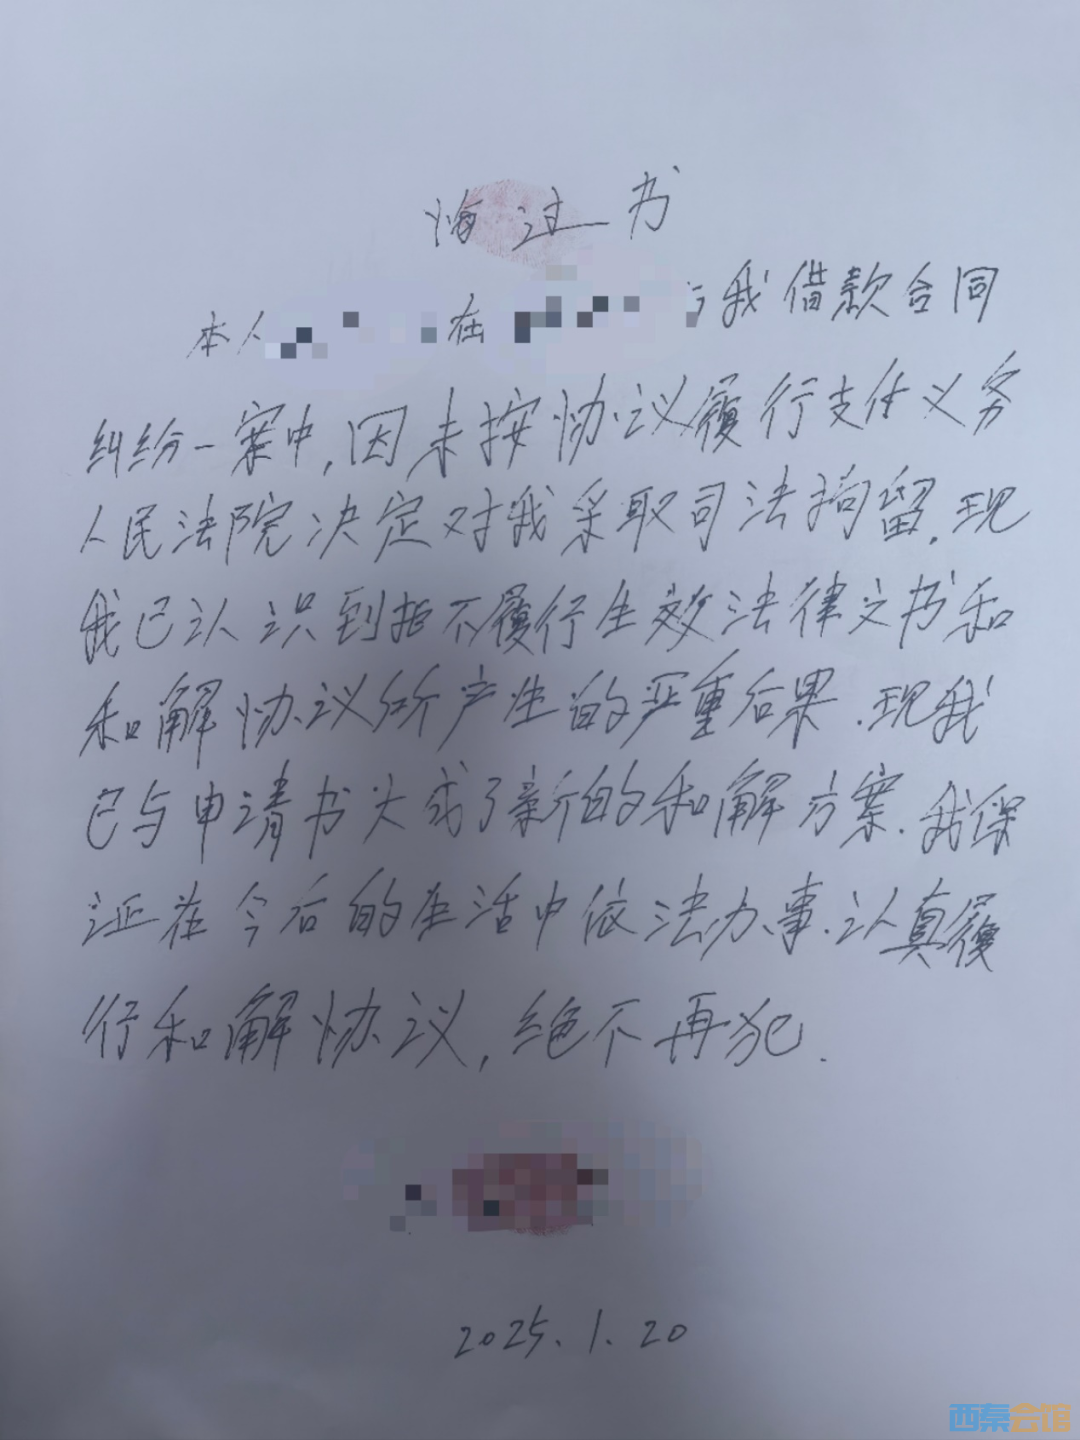 悔过书
本人 在 与我借款合同
纠纷一案中,因未按协议履行支付义务
人民法院决定对我采取司法拘留.现
我已认识到拒不履行生效法律文书和
和解协议所产生的严重后果.现我
已与申请书大成了新的和解方案.我保
证在今后的生活中依法办事.认真履
行和解协议,绝不再犯.
2025.1.20
西秦会馆